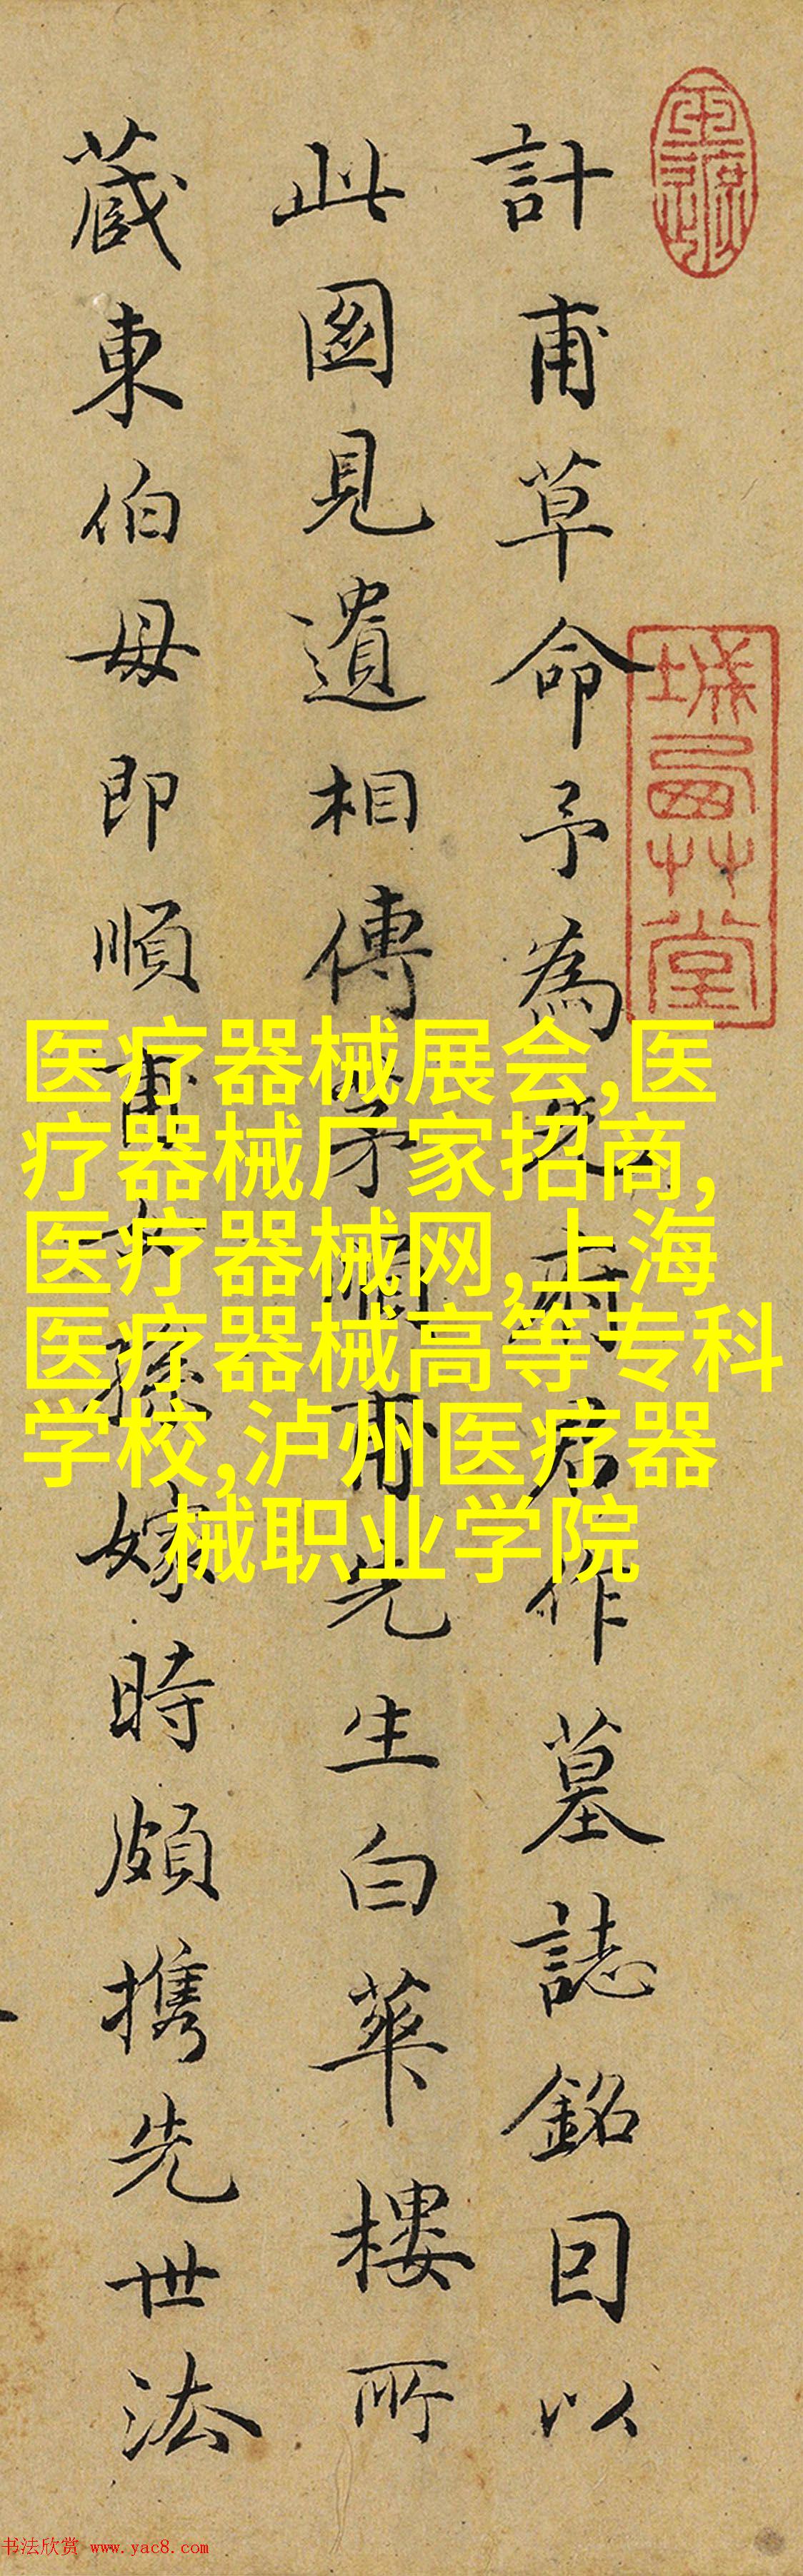 計甫草命予為君作墓誌銘因以
此圖見遺相傳茅順甫先生白華樓所
蔵東伯母即順甫女孫嫁時頗携先世法
医疗器械展会,医
疗器械厂家招商,
医疗器械网,上海
医疗器械高等专科
学校,泸州医疗器
械职业学院
书法欣赏 www.yac8.com